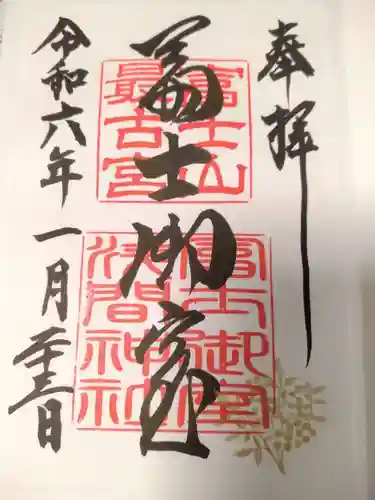 奉拝
冨士御室
富士山
最古宮
富士御室
浅間神社
令和六年一月二十三日